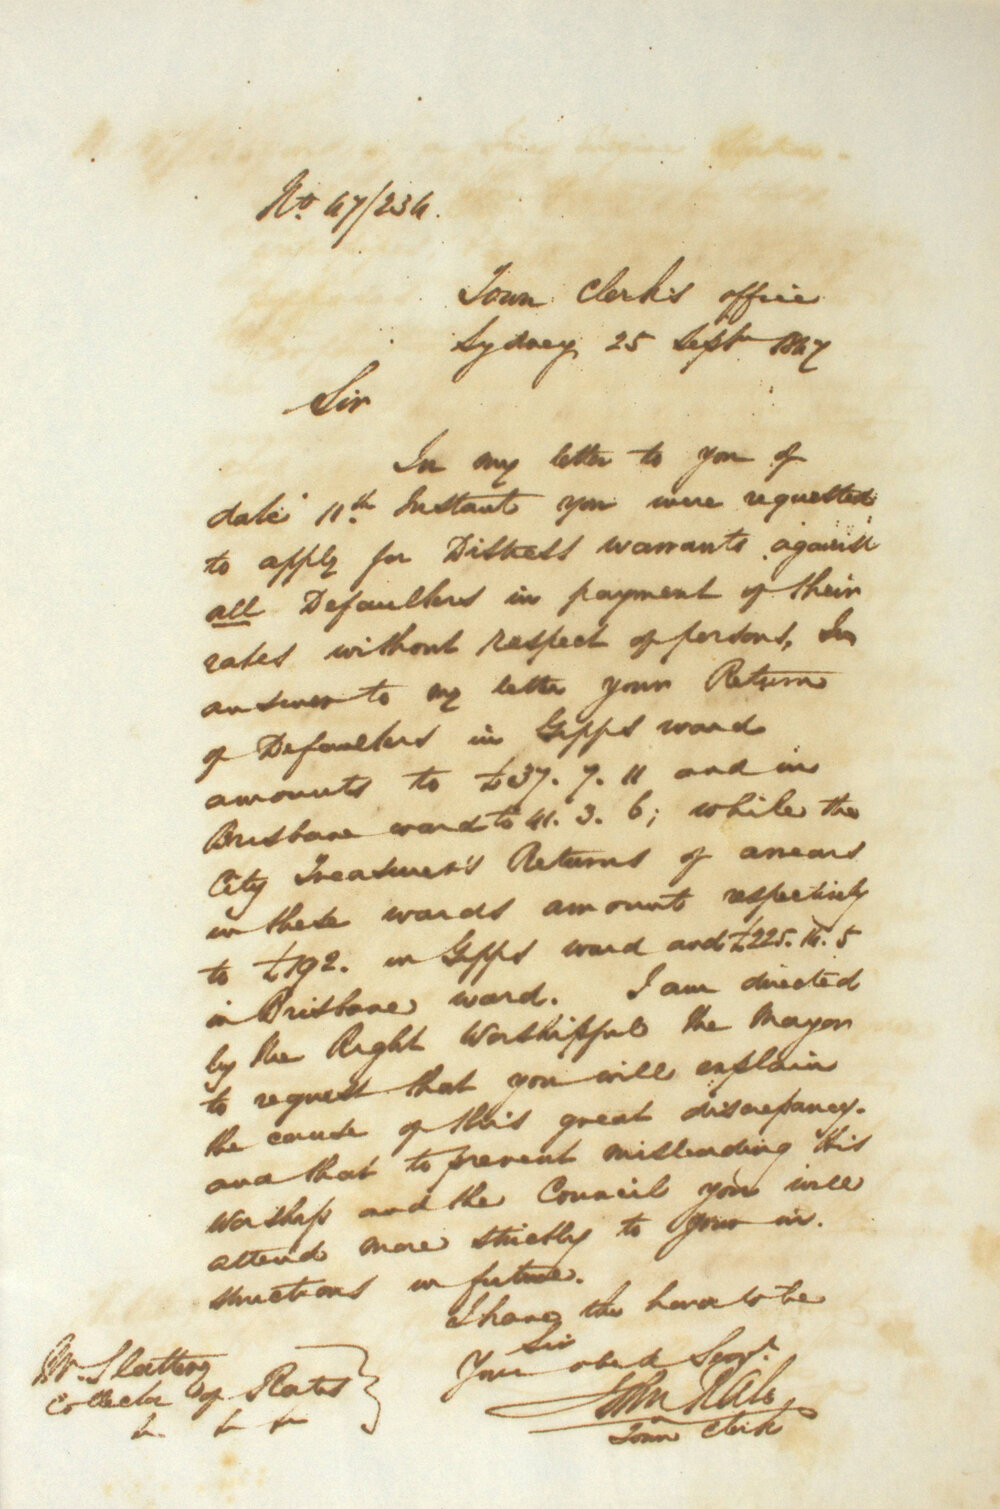 No 47/234.
Town Clerk's office
Sydney 25 Septr 1847
Sir
In my letter to you of
date 11th Instant you were requested
to apply for Distress warrants against
all Defaulters in payment of their
rates without respect of persons, In
answer to my letter your Return
of Defaulters in Gipps ward
amounts to £37. 7. 11 and in
Brisbane ward to 41. 3. 6; while the
City Treasurer's Returns of arrears
in these wards amount respectively
to £192. in Gipps ward and £225. 14. 5
in Brisbane ward. I am directed
by the Right Worshipful the Mayor
to request that you will explain
the cause of this great discrepancy.
and that to prevent misleading His
Worship and the Council you will
attend more strictly to your in-
structions in future.
I have the honor to be
Sir
Your obedt Servt.
John Rae
Town Clerk
Mr. Slattery
Collector of Rates
&c &c &c